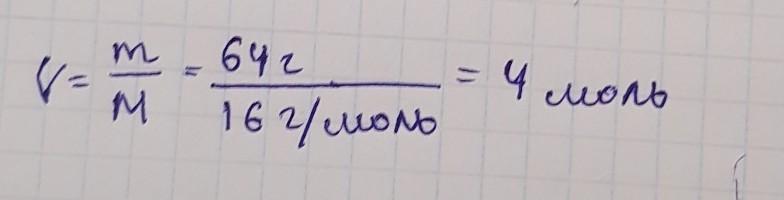 ν = m/M = 64 г / 16 г/моль = 4 моль